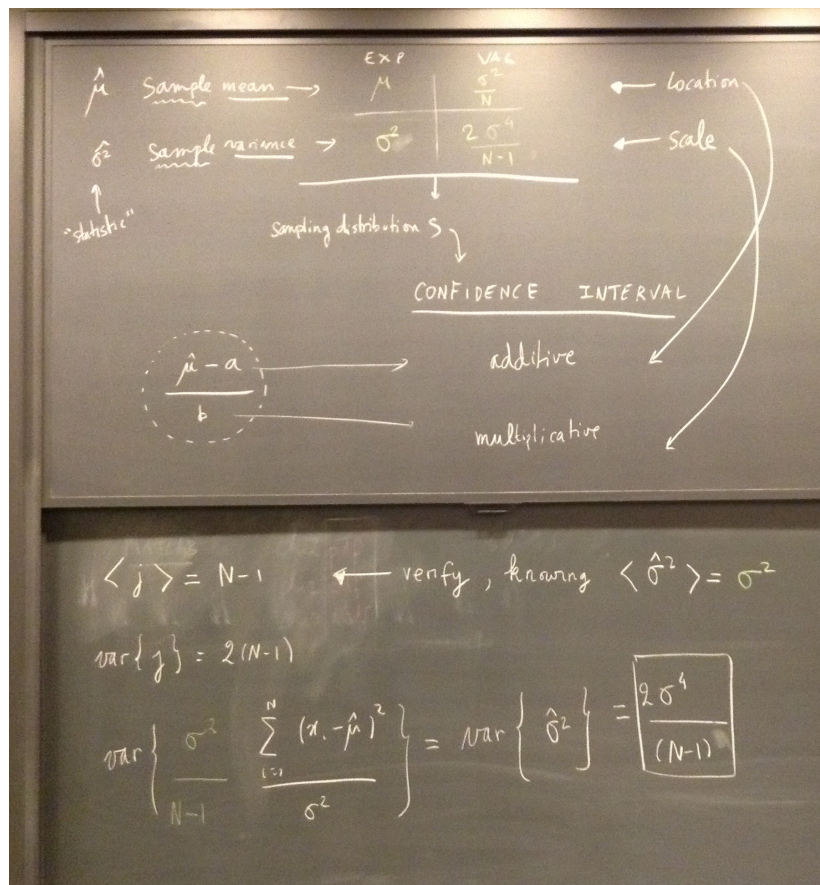 EXP VAR
μ̂ Sample mean → μ σ²/N ← location
σ̂² Sample variance → σ² 2σ⁴/N-1 ← scale
"statistic"
sampling distribution S
CONFIDENCE INTERVAL
μ̂ - a
b
additive
multiplicative
<j> = N-1 ← verify, knowing <σ̂²> = σ²
var{j} = 2(N-1)
var{ σ²/N-1 ∑_{i=1}^{N} (x_i - μ̂)²/σ² } = var{ σ̂² } = 2σ⁴/(N-1)